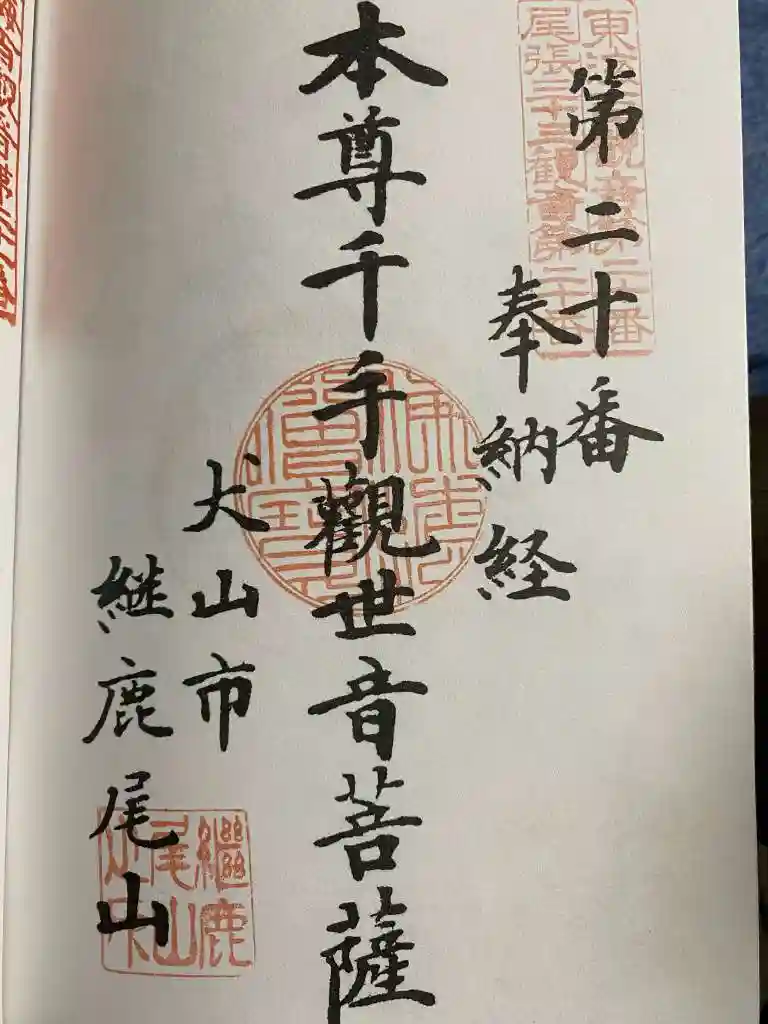 第二十番
奉納経
本尊千手觀世音菩薩
犬山市
継鹿尾山
尾張三十三觀音第二十番
繼鹿
尾山